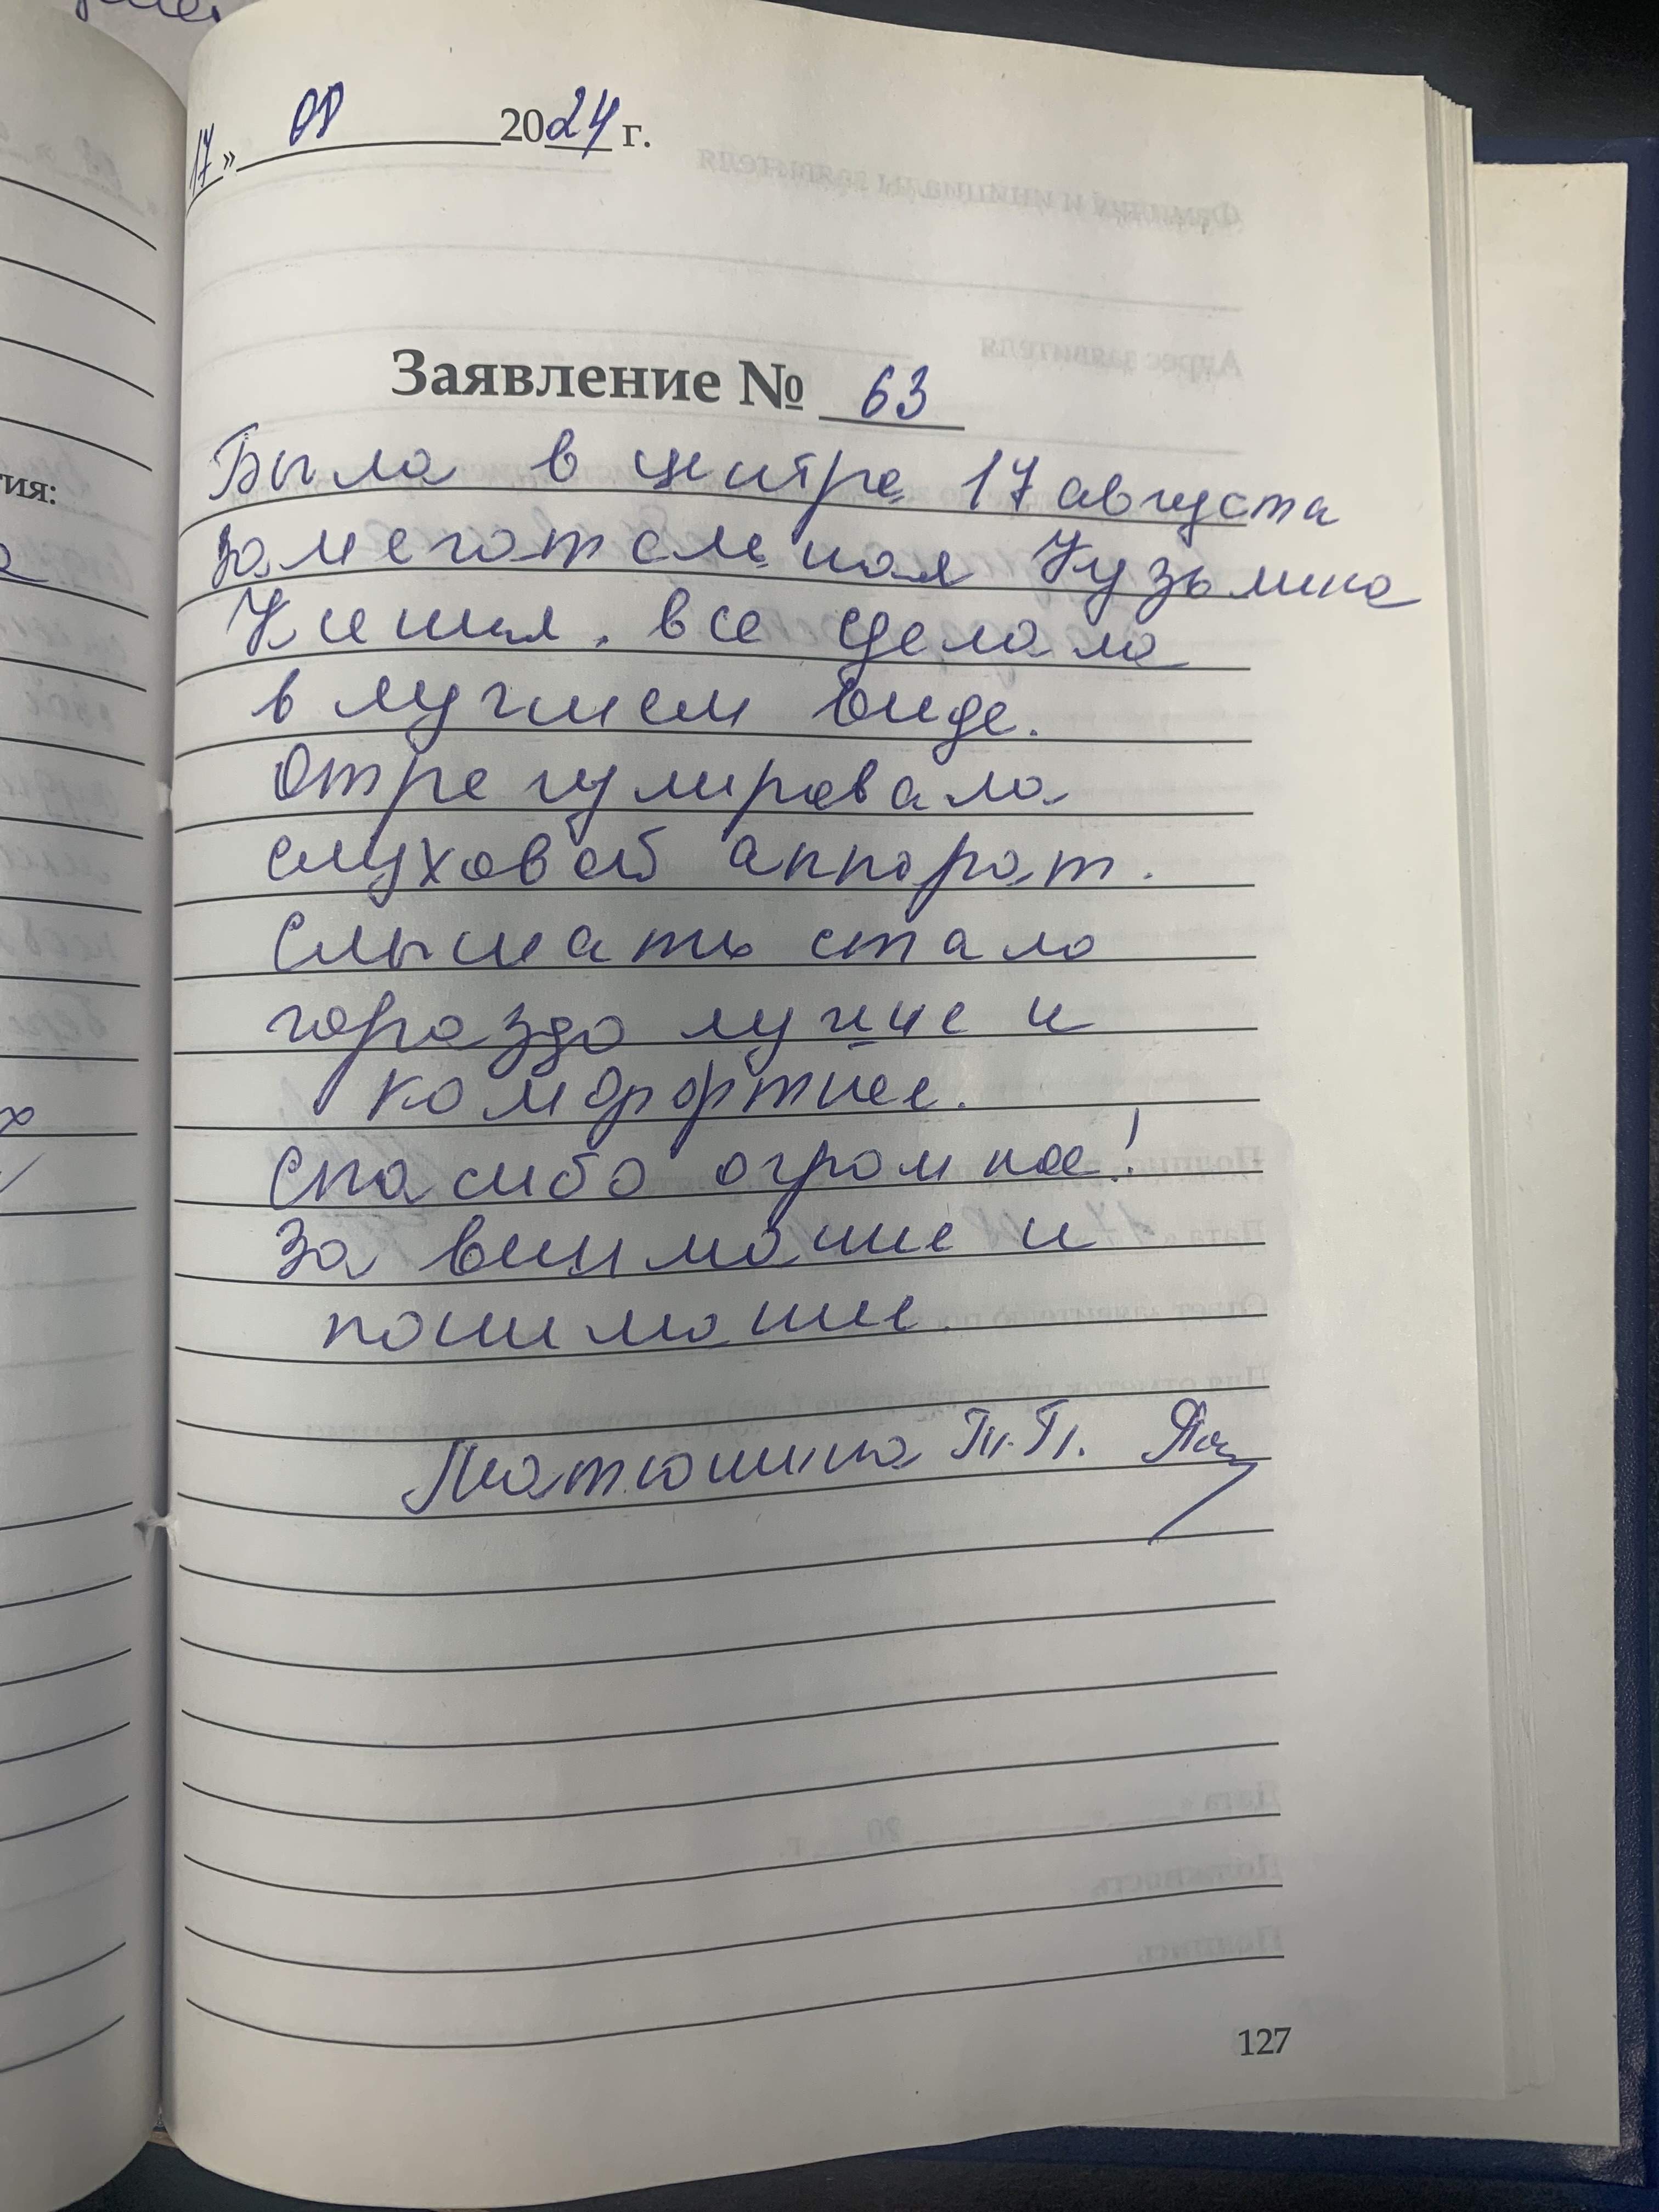 17» 08 2024 г.
Заявление № 63
Была в центре 17 августа
Замечательная Кузьмина
Ксения, все сделала
в лучшем виде.
Отрегулировала
слуховой аппарат.
Слышать стало
гораздо лучше и
комфортнее.
Спасибо огромное!
За внимание и
понимание
Матюшина Т.П.
127
тия: